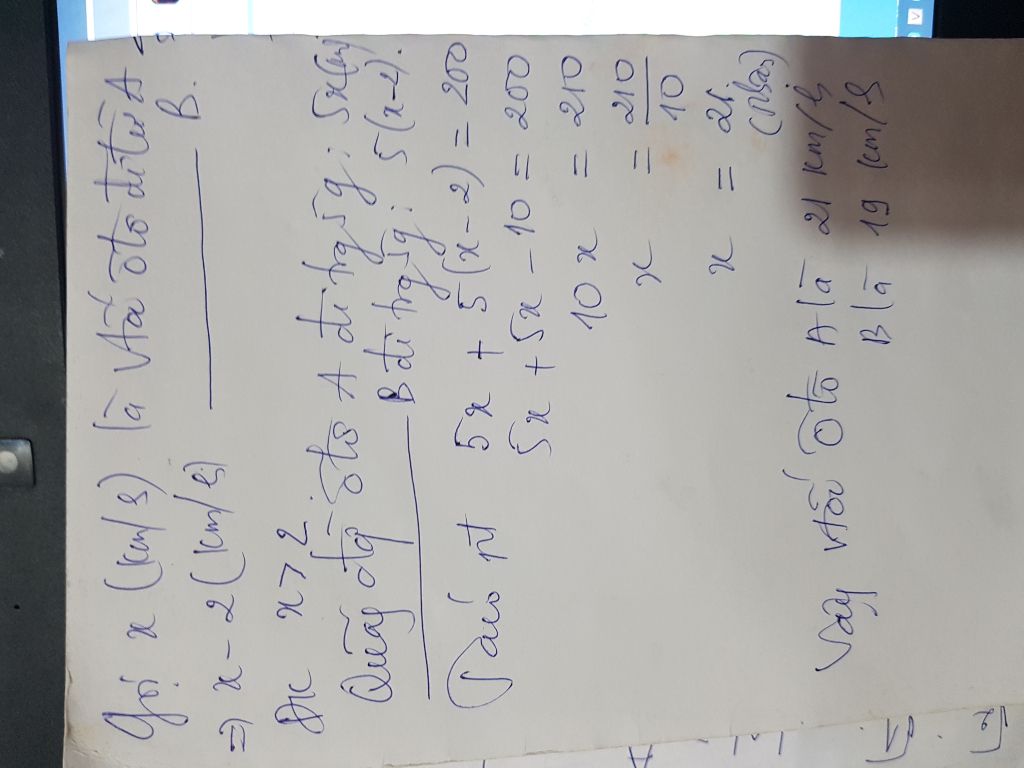 Gọi x (km/g) là vtốc ôtô đi từ A
⇒ x - 2 (km/g) B.
ĐK x > 2
Quãng đg ôtô A đi trg 5g: 5x (km)
B đi trg 5g: 5(x-2).
Ta có pt 5x + 5(x-2) = 200
5x + 5x - 10 = 200
10x = 210
x = 210/10
x = 21
(nhận)
Vậy vtốc ôtô A là 21 km/g
B là 19 km/g